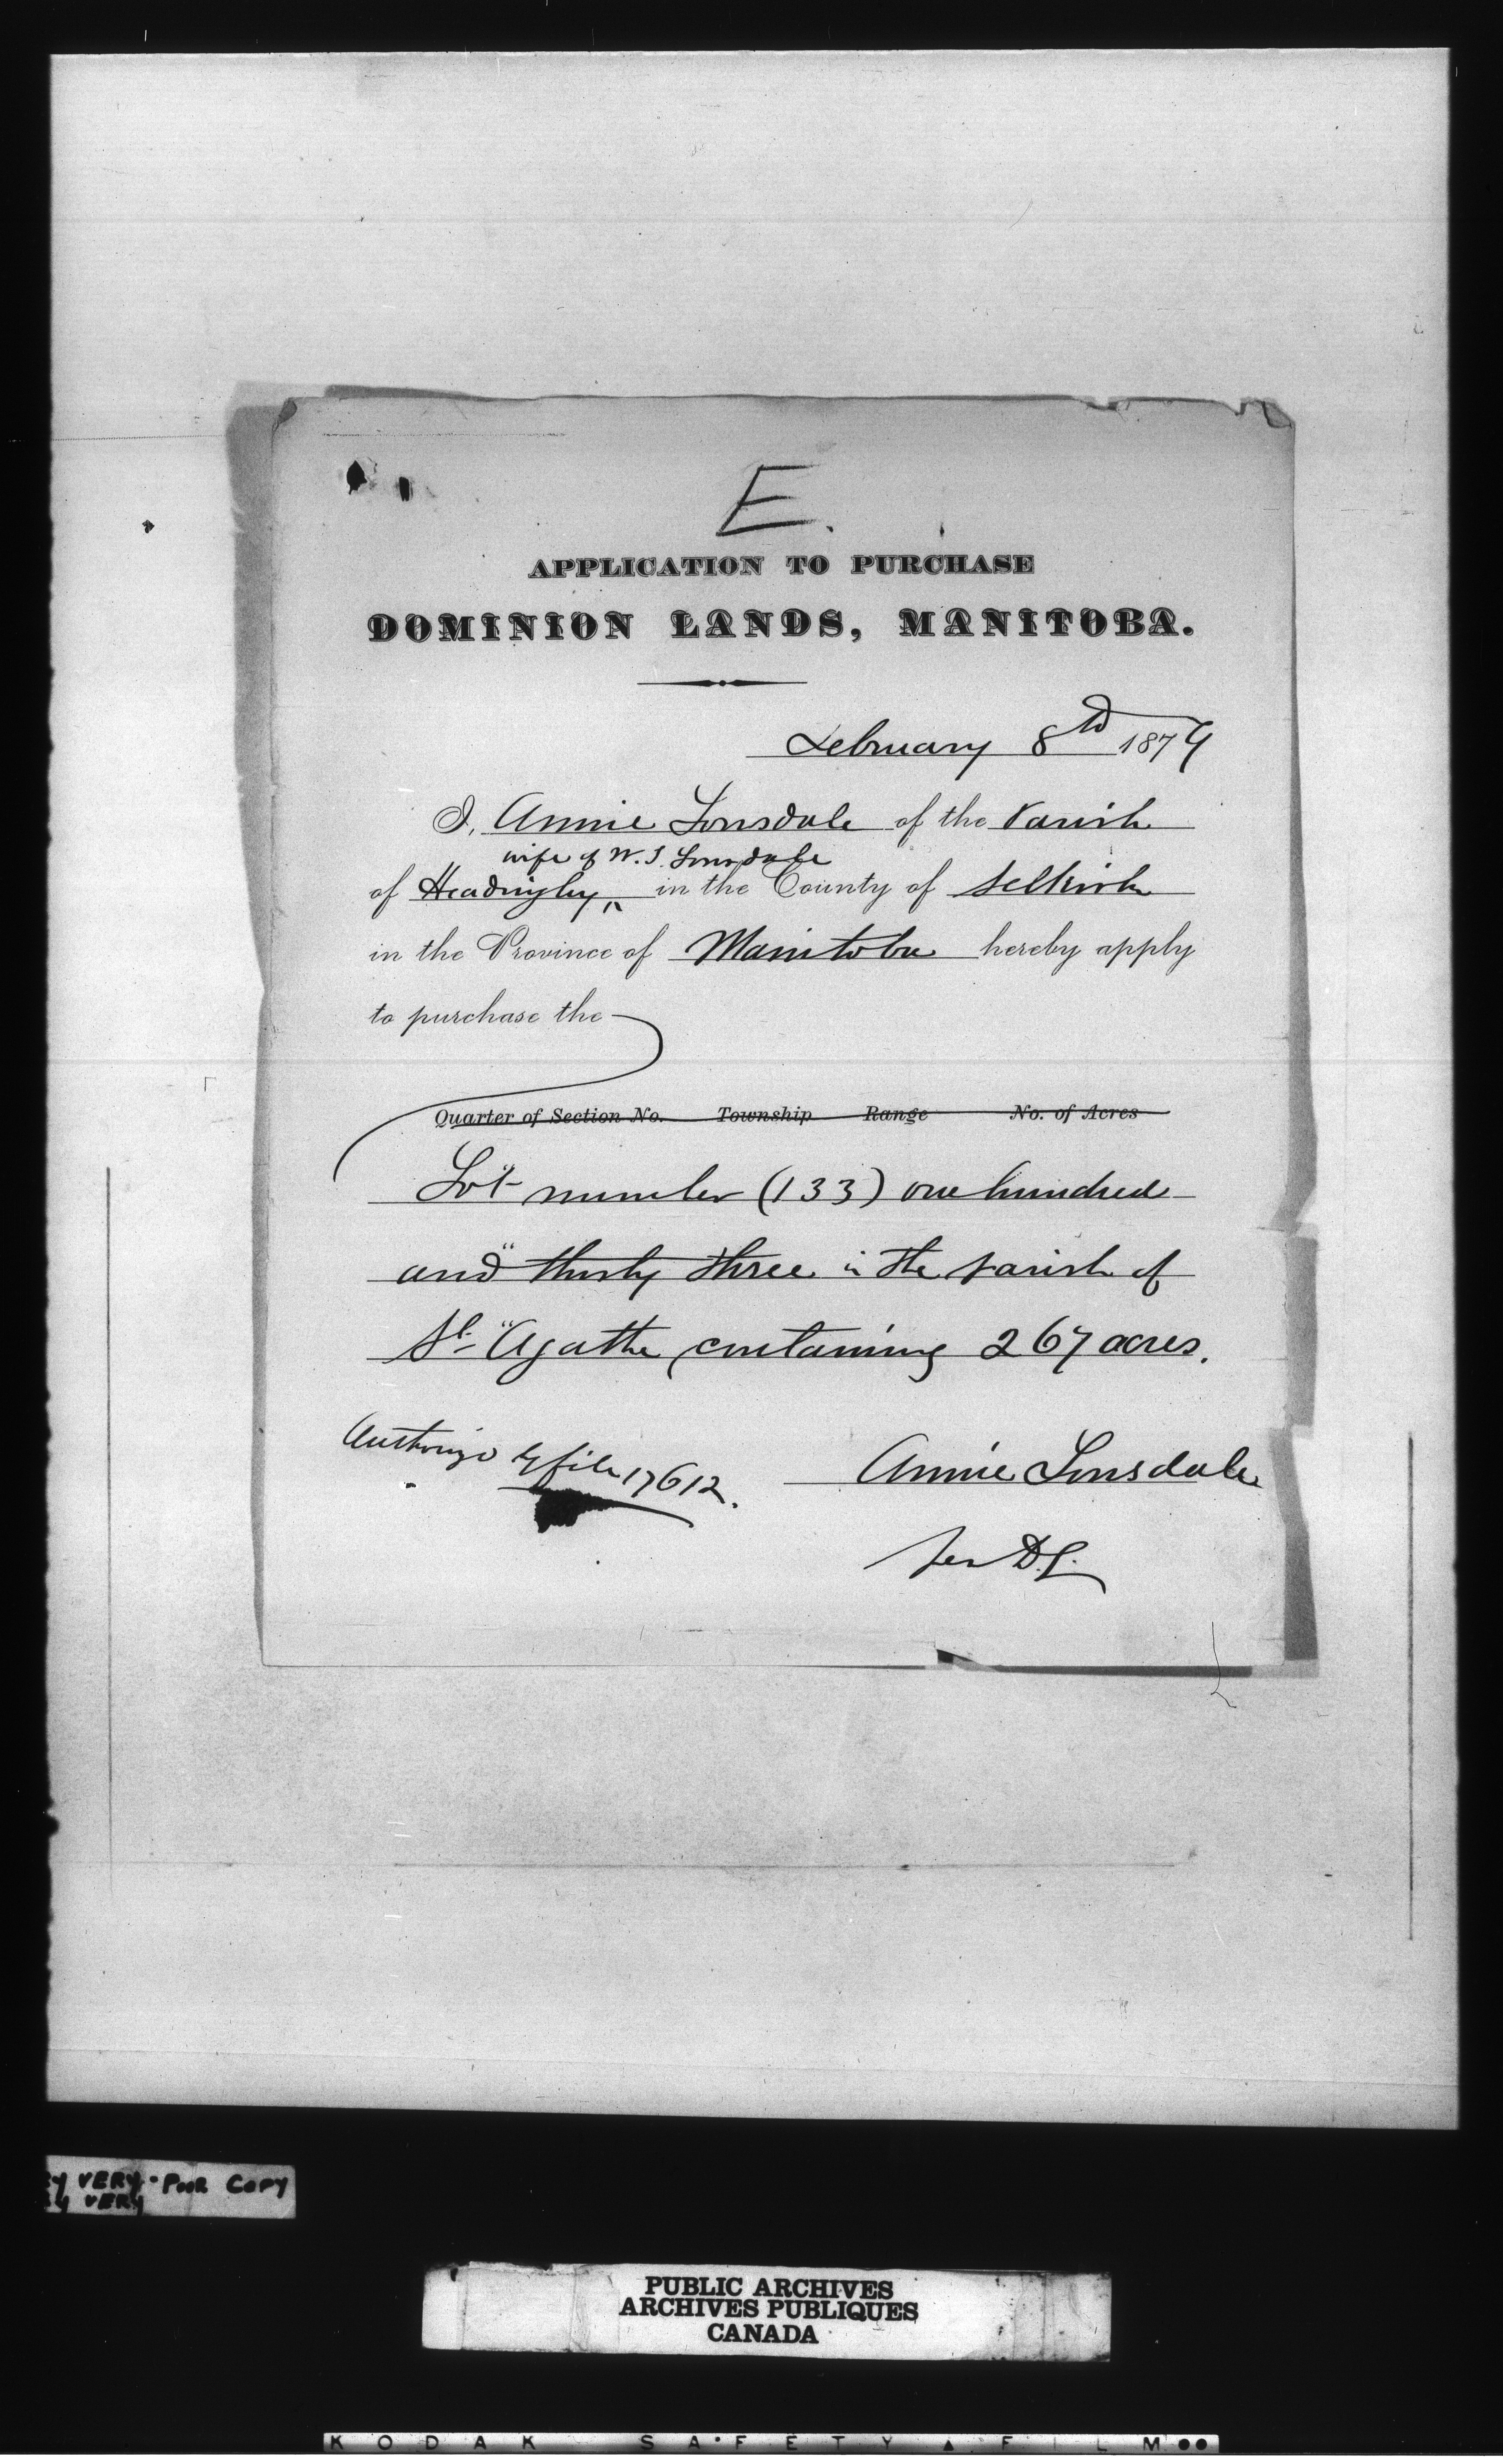 E.
APPLICATION TO PURCHASE
DOMINION LANDS, MANITOBA.
February 8th 1879
I, Annie Lonsdale of the Parish
wife of W. J. Lonsdale
of Headingley in the County of Selkirk
in the Province of Manitoba hereby apply
to purchase the
Quarter of Section No. Township Range No. of Acres
Lot number (133) one hundred
and thirty three in the parish of
St. Agathe containing 267 acres.
Annie Lonsdale
Authorized by file 17612.
per D.L.
VERY-POOR COPY
VERY
PUBLIC ARCHIVES
ARCHIVES PUBLIQUES
CANADA
KODAK SAFETY FILM